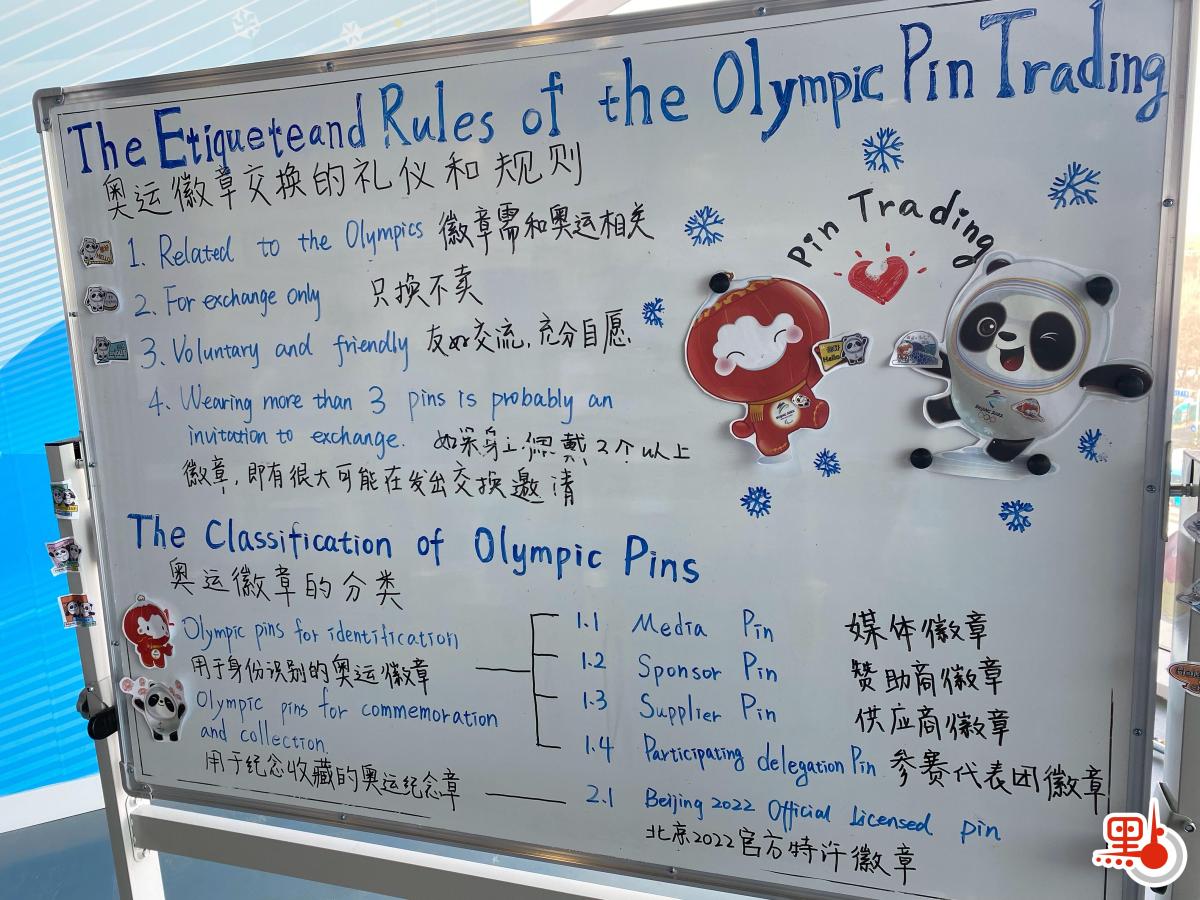 The Etiqueteand Rules of the Olympic Pin Trading
奥运徽章交换的礼仪和规则
Pin Trading
1. Related to the Olympics 徽章需和奥运相关
2. For exchange only 只换不卖
3. Voluntary and friendly 友好交流,充分自愿.
4. Wearing more than 3 pins is probably an
invitation to exchange. 如果身上佩戴2个以上
徽章,即有很大可能在发出交换邀请
The Classification of Olympic Pins
奥运徽章的分类
Olympic pins for identification
用于身份识别的奥运徽章
1.1 Media Pin 媒体徽章
1.2 Sponsor Pin 赞助商徽章
1.3 Supplier Pin 供应商徽章
1.4 Participating delegation Pin 参赛代表团徽章
Olympic pins for commemoration
and collection.
用于纪念收藏的奥运纪念章
2.1 Beijing 2022 Official Licensed pin
北京2022官方特许徽章
BEIJING 2022
Hello
點